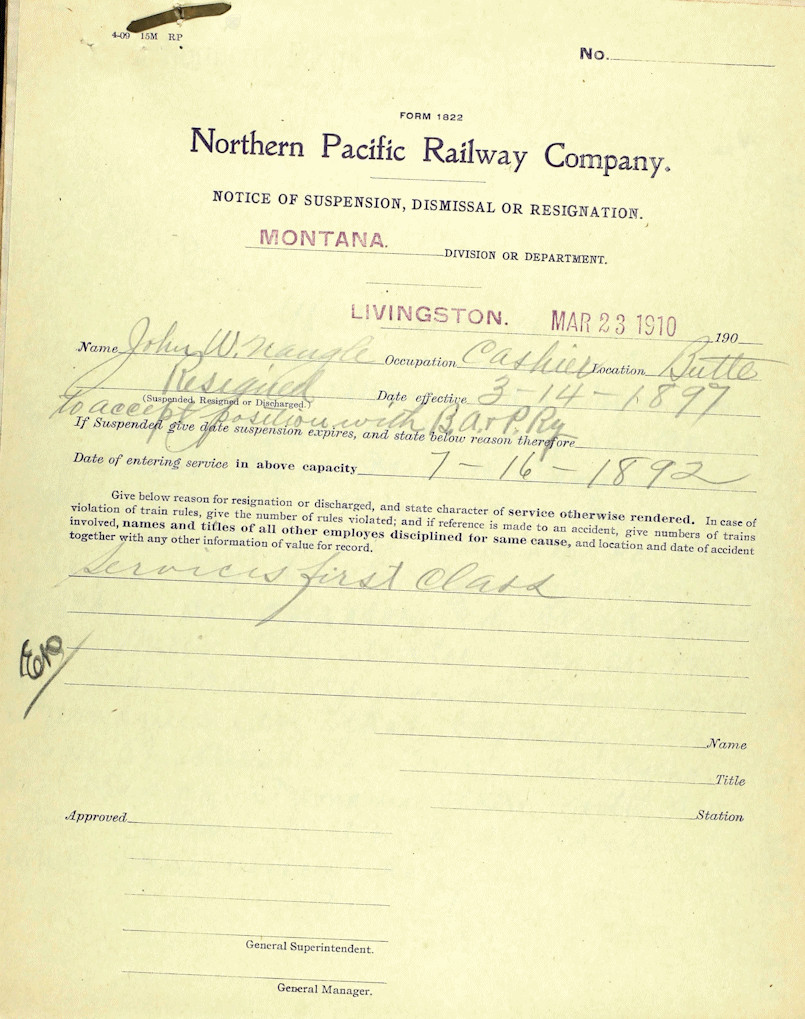 4-09 15M RP
No.
FORM 1822
Northern Pacific Railway Company.
NOTICE OF SUSPENSION, DISMISSAL OR RESIGNATION.
MONTANA. DIVISION OR DEPARTMENT.
LIVINGSTON. MAR 23 1910 190
Name John W. Nangle Occupation Cashier Location Butte
Resigned Date effective 3-14-1897
(Suspended, Resigned or Discharged.)
to accept position with B.A.&P. Ry
If Suspended give date suspension expires, and state below reason therefore
Date of entering service in above capacity 7-16-1892
Give below reason for resignation or discharged, and state character of service otherwise rendered. In case of
violation of train rules, give the number of rules violated; and if reference is made to an accident, give numbers of trains
involved, names and titles of all other employes disciplined for same cause, and location and date of accident
together with any other information of value for record.
Services first Class
Name
Title
Approved Station
General Superintendent.
General Manager.